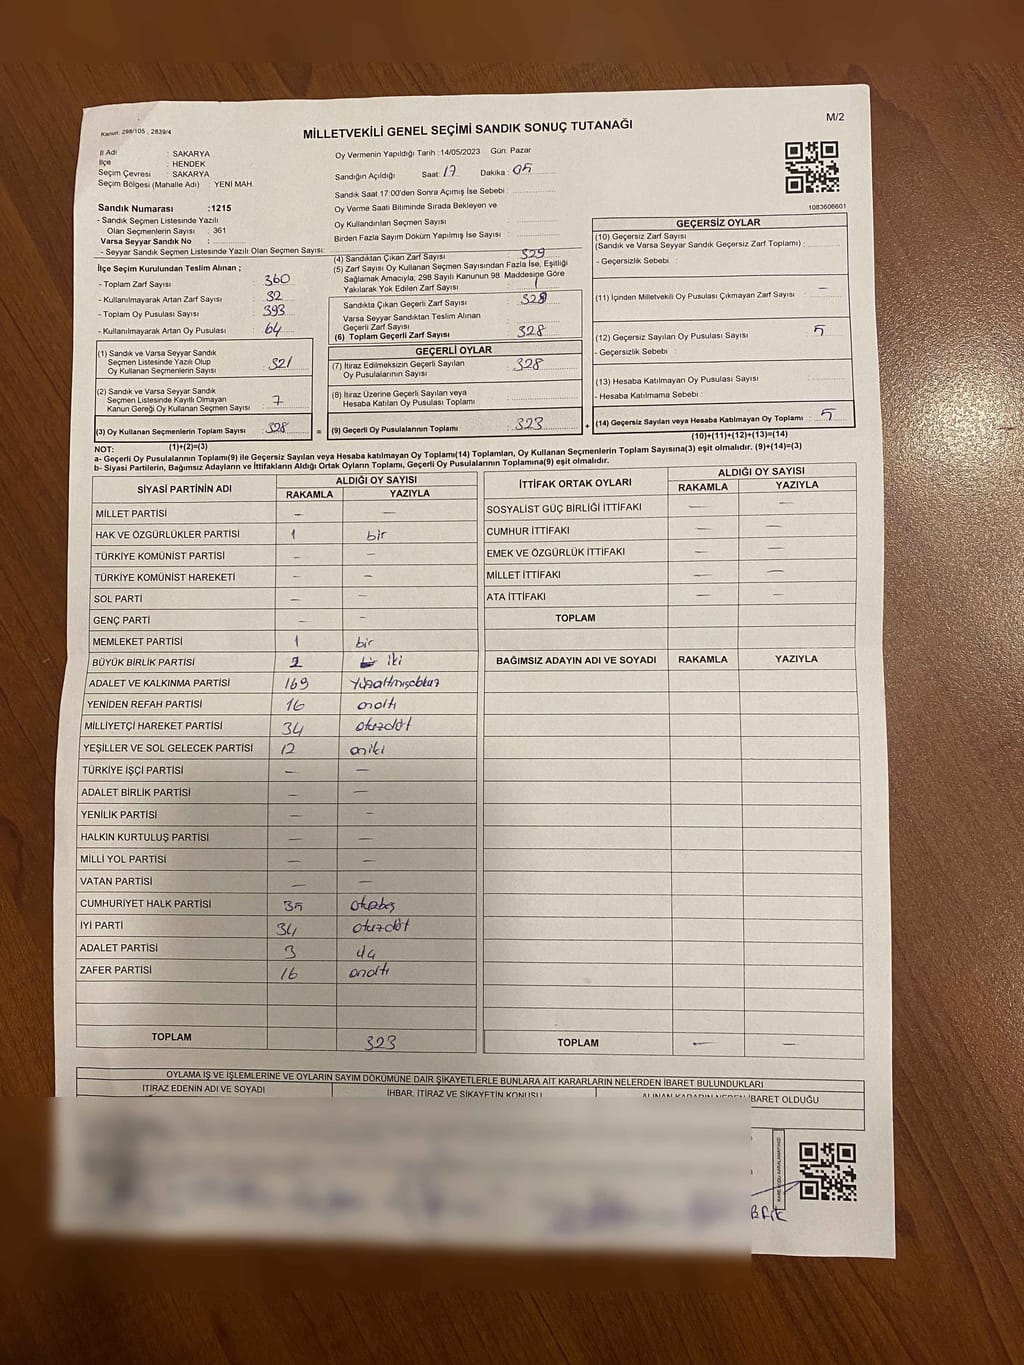 Kanun: 298/105 , 2839/4
MİLLETVEKİLİ GENEL SEÇİMİ SANDIK SONUÇ TUTANAĞI
M/2
İl Adı : SAKARYA
İlçe : HENDEK
Seçim Çevresi : SAKARYA
Seçim Bölgesi (Mahalle Adı) : YENİ MAH.
Sandık Numarası :1215
- Sandık Seçmen Listesinde Yazılı
Olan Seçmenlerin Sayısı : 361
Varsa Seyyar Sandık No :
- Seyyar Sandık Seçmen Listesinde Yazılı Olan Seçmen Sayısı:
İlçe Seçim Kurulundan Teslim Alınan ;
- Toplam Zarf Sayısı : 360
- Kullanılmayarak Artan Zarf Sayısı : 32
- Toplam Oy Pusulası Sayısı : 393
- Kullanılmayarak Artan Oy Pusulası : 64
(1) Sandık ve Varsa Seyyar Sandık
Seçmen Listesinde Yazılı Olup
Oy Kullanan Seçmenlerin Sayısı : 321
(2) Sandık ve Varsa Seyyar Sandık
Seçmen Listesinde Kayıtlı Olmayan
Kanun Gereği Oy Kullanan Seçmen Sayısı : 7
(3) Oy Kullanan Seçmenlerin Toplam Sayısı : 328
(1)+(2)=(3)
Oy Vermenin Yapıldığı Tarih :14/05/2023 Gün: Pazar
Sandığın Açıldığı Saat: 17 Dakika : 05
Sandık Saat 17:00'den Sonra Açımış İse Sebebi :
Oy Verme Saati Bitiminde Sırada Bekleyen ve
Oy Kullandırılan Seçmen Sayısı :
Birden Fazla Sayım Döküm Yapılmış İse Sayısı :
(4) Sandıktan Çıkan Zarf Sayısı : 329
(5) Zarf Sayısı Oy Kullanan Seçmen Sayısından Fazla İse, Eşitliği
Sağlamak Amacıyla; 298 Sayılı Kanunun 98. Maddesine Göre
Yakılarak Yok Edilen Zarf Sayısı : 1
Sandıkta Çıkan Geçerli Zarf Sayısı : 328
Varsa Seyyar Sandıktan Teslim Alınan
Geçerli Zarf Sayısı :
(6) Toplam Geçerli Zarf Sayısı : 328
GEÇERLİ OYLAR
(7) İtiraz Edilmeksizin Geçerli Sayılan
Oy Pusulalarının Sayısı : 328
(8) İtiraz Üzerine Geçerli Sayılan veya
Hesaba Katılan Oy Pusulası Toplamı :
= (9) Geçerli Oy Pusulalarının Toplamı : 323
1083606601
GEÇERSİZ OYLAR
(10) Geçersiz Zarf Sayısı
(Sandık ve Varsa Seyyar Sandık Geçersiz Zarf Toplamı) :
- Geçersizlik Sebebi :
(11) İçinden Milletvekili Oy Pusulası Çıkmayan Zarf Sayısı : —
(12) Geçersiz Sayılan Oy Pusulası Sayısı : 5
- Geçersizlik Sebebi :
(13) Hesaba Katılmayan Oy Pusulası Sayısı :
- Hesaba Katılmama Sebebi :
+ (14) Geçersiz Sayılan veya Hesaba Katılmayan Oy Toplamı : 5
(10)+(11)+(12)+(13)=(14)
NOT:
a- Geçerli Oy Pusulalarının Toplamı(9) ile Geçersiz Sayılan veya Hesaba Katılmayan Oy Toplamı(14) Toplamları, Oy Kullanan Seçmenlerin Toplam Sayısına(3) eşit olmalıdır. (9)+(14)=(3)
b- Siyasi Partilerin, Bağımsız Adayların ve İttifakların Aldığı Ortak Oyların Toplamı, Geçerli Oy Pusulalarının Toplamına(9) eşit olmalıdır.
SİYASİ PARTİNİN ADI ALDIĞI OY SAYISI
RAKAMLA YAZIYLA
MİLLET PARTİSİ — —
HAK VE ÖZGÜRLÜKLER PARTİSİ 1 bir
TÜRKİYE KOMÜNİST PARTİSİ — —
TÜRKİYE KOMÜNİST HAREKETİ — —
SOL PARTİ — —
GENÇ PARTİ — —
MEMLEKET PARTİSİ 1 bir
BÜYÜK BİRLİK PARTİSİ 2 bir iki
ADALET VE KALKINMA PARTİSİ 169 Yüzaltmışdokuz
YENİDEN REFAH PARTİSİ 16 onaltı
MİLLİYETÇİ HAREKET PARTİSİ 34 otuzdört
YEŞİLLER VE SOL GELECEK PARTİSİ 12 oniki
TÜRKİYE İŞÇİ PARTİSİ — —
ADALET BİRLİK PARTİSİ — —
YENİLİK PARTİSİ — —
HALKIN KURTULUŞ PARTİSİ — —
MİLLİ YOL PARTİSİ — —
VATAN PARTİSİ — —
CUMHURİYET HALK PARTİSİ 35 otuzbeş
İYİ PARTİ 34 otuzdört
ADALET PARTİSİ 3 üç
ZAFER PARTİSİ 16 onaltı
TOPLAM 323
İTTİFAK ORTAK OYLARI ALDIĞI OY SAYISI
RAKAMLA YAZIYLA
SOSYALİST GÜÇ BİRLİĞİ İTTİFAKI — —
CUMHUR İTTİFAKI — —
EMEK VE ÖZGÜRLÜK İTTİFAKI — —
MİLLET İTTİFAKI — —
ATA İTTİFAKI — —
TOPLAM
BAĞIMSIZ ADAYIN ADI VE SOYADI RAKAMLA YAZIYLA
TOPLAM — —
OYLAMA İŞ VE İŞLEMLERİNE VE OYLARIN SAYIM DÖKÜMÜNE DAİR ŞİKAYETLERLE BUNLARA AİT KARARLARIN NELERDEN İBARET BULUNDUKLARI
İTİRAZ EDENİN ADI VE SOYADI İHBAR, İTİRAZ VE ŞİKAYETİN KONUSU ALINAN KARARIN NEDEN İBARET OLDUĞU